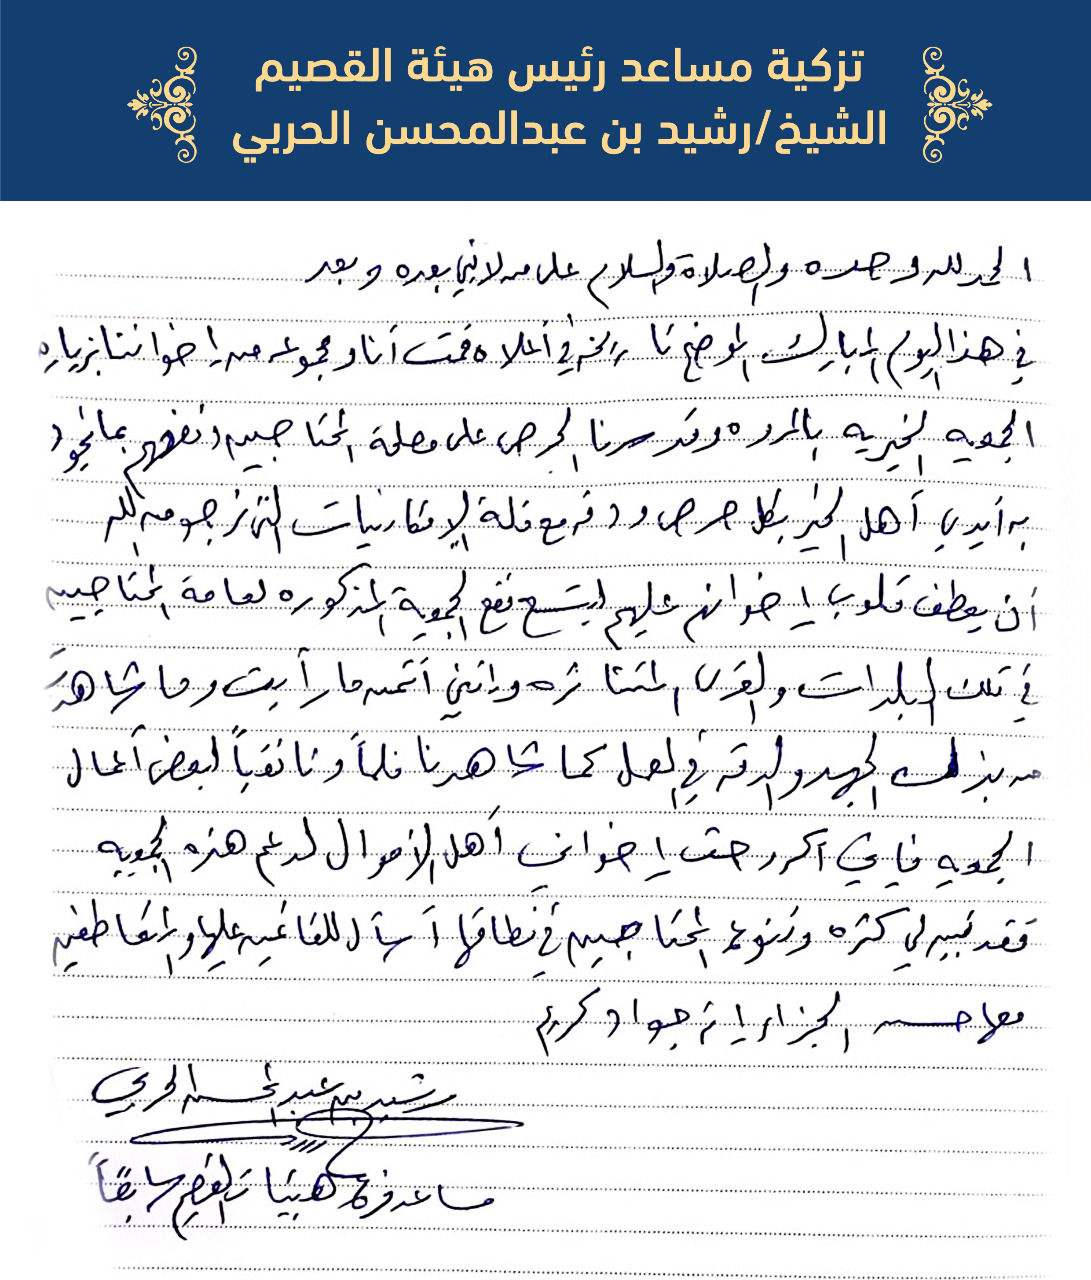 تزكية مساعد رئيس هيئة القصيم
الشيخ/رشيد بن عبدالمحسن الحربي
الحمد لله وحده والصلاة والسلام على من لا نبي بعده وبعد
في هذا اليوم المبارك الموضح تاريخه في أعلاه قمت أنا ومجموعه من إخواننا بزياره
الجمعيه الخيريه بالمروه وقد سرنا الحرص على مصلحة المحتاجين ونفعهم بما تجود
به أيدي أهل الخير بكل حرص ودقه مع قلة الإمكانيات التي نرجو من الله
أن يعطف قلوب إخوانهم عليهم ليتسع نفع الجمعية المذكوره لعامة المحتاجين
في تلك البلدات والقرى المتناثره وإنني أثمن ما رأيت وما شاهدت
من بذل الجهد والدقه في العمل كما شاهدنا فلماً وثائقياً لبعض أعمال
الجمعيه فإني أكرر حث إخواني أهل الأموال لدعم هذه الجمعيه
فقد تبين لي كثره وتنوع المحتاجين في نطاقها أسأل الله للقائمين عليها والمتعاطفين
معها حسن الجزاء إنه جواد كريم
رشيد بن عبد المحسن الحربي
مساعد فرع هيئات القصيم سابقاً